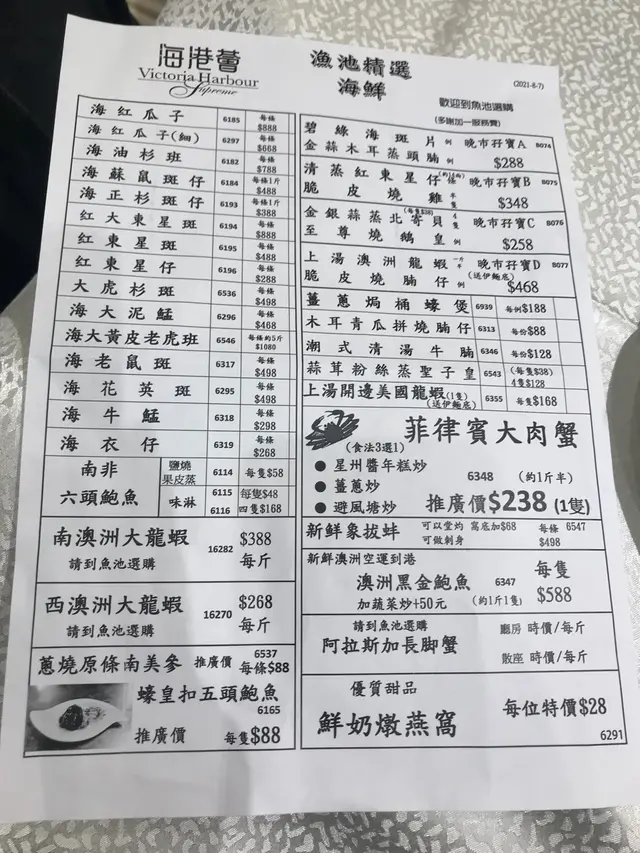 海港薈
Victoria Harbour
Supreme
漁池精選
海鮮
(2021-8-7)
歡迎到魚池選購
(多謝加一服務費)
海紅瓜子 6185 每條 $888
海紅瓜子(細) 6297 每條 $668
海油杉班 6182 每條 $788
海蘇鼠斑仔 6184 每條1斤 $488
海正杉斑仔 6193 每條1斤 $388
紅大東星斑 6194 每條 $888
紅東星斑 6195 每條 $488
紅東星仔 6196 每條 $288
大虎杉斑 6536 每條 $498
海大泥鯭 6296 每條 $468
海大黃皮老虎斑 6546 每條約5斤 $1080
海老鼠斑 6317 每條 $498
海花英斑 6295 每條 $498
海牛鯭 6318 每條 $298
海衣仔 6319 每條 $268
南非
六頭鮑魚
鹽燒
果皮蒸 6114 每隻$58
味淋 6115 每隻$48
6116 四隻$168
南澳洲大龍蝦 16282 $388
請到魚池選購 每斤
西澳洲大龍蝦 16270 $268
請到魚池選購 每斤
蔥燒原條南美參 推廣價 6537 每條$88
蠔皇扣五頭鮑魚
6165
推廣價 每隻$88
碧綠海斑片 例 晚市孖寶A B074
金蒜木耳蒸頭腩 例 $288
清蒸紅東星仔 條 晚市孖寶B B075
脆皮燒雞 半隻 $348
金銀蒜蒸北寄貝 (每隻$38) 4隻 晚市孖寶C B076
至尊燒鵝皇 例 $258
上湯澳洲龍蝦 一斤半 晚市孖寶D B077
脆皮燒腩仔 例 (送伊麵底) $468
薑蔥焗桶蠔煲 6939 每例$188
木耳青瓜拼燒腩仔 6313 每份$88
潮式清湯牛腩 6346 每份$128
蒜茸粉絲蒸聖子皇 6543 (每隻$38) 4隻$128
上湯開邊美國龍蝦(1隻) (送伊麵底) 6355 每隻$168
菲律賓大肉蟹
(食法3選1)
● 星州醬年糕炒
● 薑蔥炒 6348 (約1斤半)
● 避風塘炒 推廣價$238 (1隻)
新鮮象拔蚌 可以堂灼 窩底加$68 每條 6547
可做刺身 $498
新鮮澳洲空運到港
澳洲黑金鮑魚 6347 每隻
加蔬菜炒+50元 (約1斤1隻) $588
請到魚池選購 廳房 時價/每斤
阿拉斯加長脚蟹
散座 時價/每斤
優質甜品
鮮奶燉燕窩 每位特價$28
6291